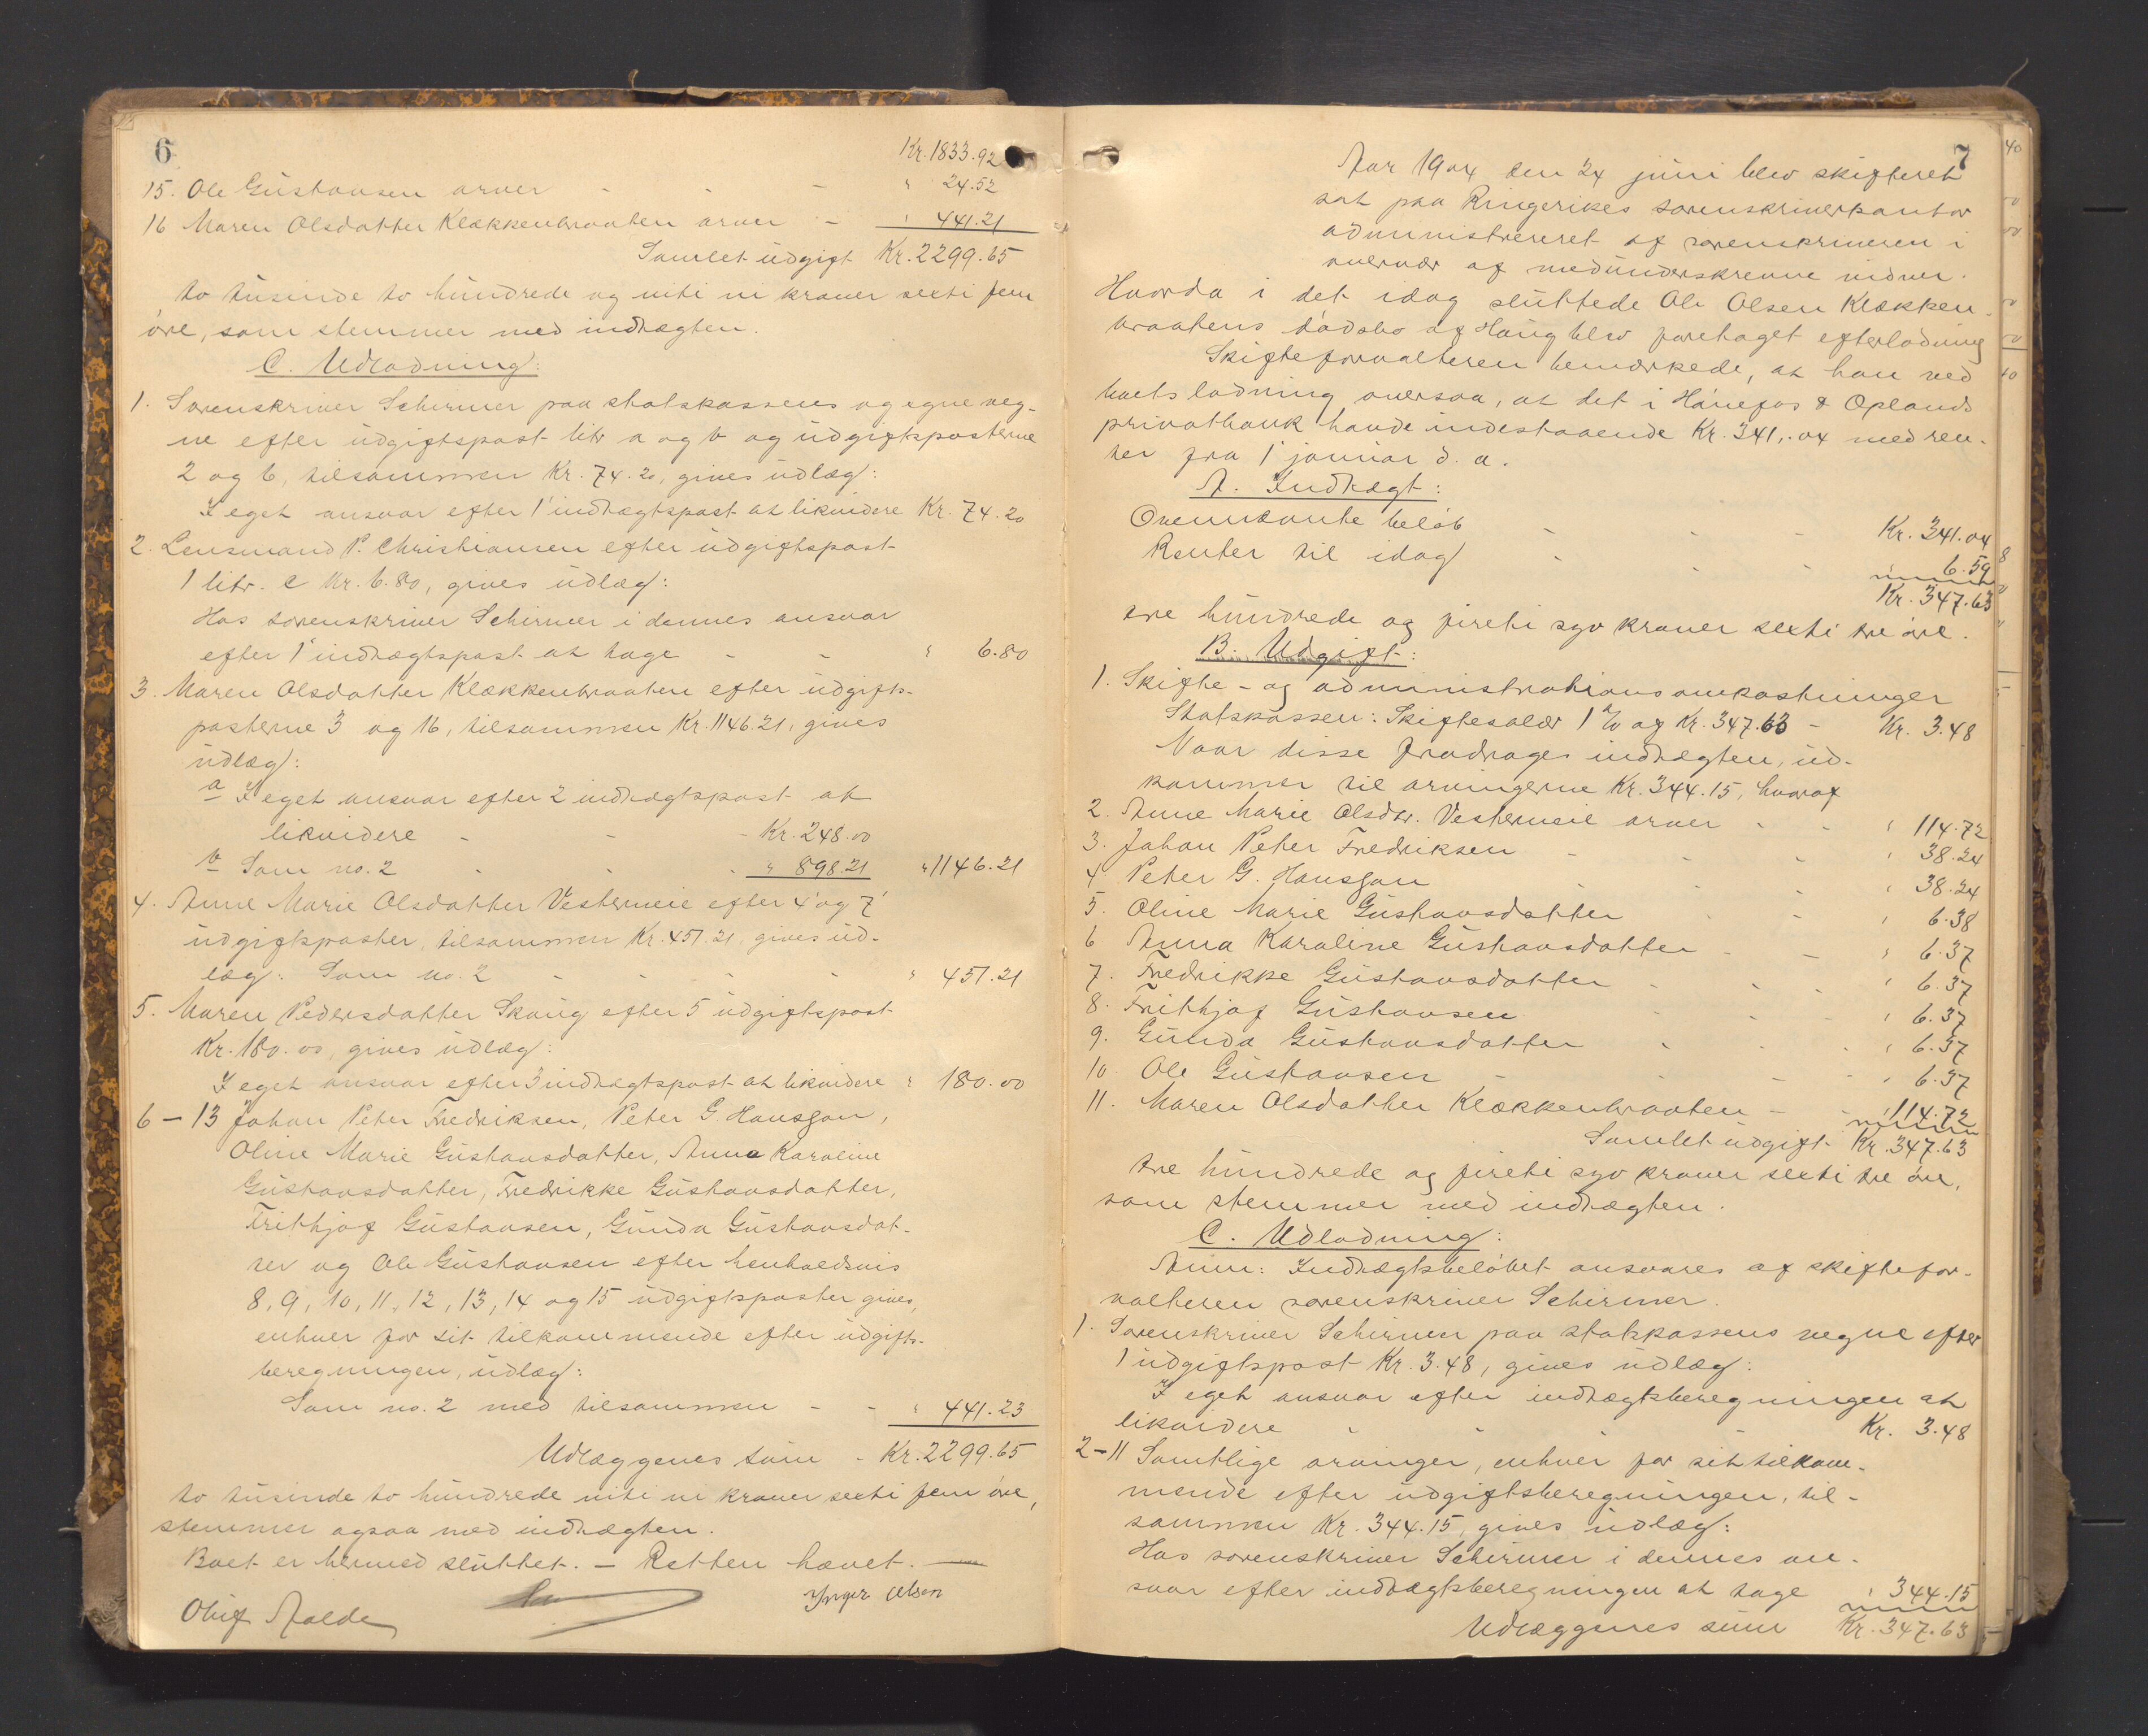 6
Kr. 1833.92
15. Ole Gustavsen arver - - - " 24.52
16 Maren Olsdatter Klækkenbraaten arver - " 441.21
Samlet udgift Kr. 2299.65
to tusinde to hundrede og niti ni kroner sexti fem
øre, som stemmer med indtægten.
C. Udlodning:
1. Sorenskriver Schirmer paa statskassens og egne veg-
ne efter udgiftspost litr a og b og udgiftsposterne
2 og 6, tilsammen Kr. 74.20, gives udlæg:
I eget ansvar efter 1' indtægtspost at likvidere Kr. 74.20
2. Lensmand P. Christiansen efter udgiftspost
1 litr. c Kr. 6.80, gives udlæg:
Hos sorenskriver Schirmer i dennes ansvar
efter 1' indtægtspost at tage - - " 6.80
3. Maren Olsdatter Klækkenbraaten efter udgifts-
posterne 3 og 16, tilsammen Kr. 1146.21, gives
udlæg:
a I eget ansvar efter 2 indtægtspost at
likvidere - - - Kr. 248.00
b Som no. 2 - - - " 898.21 " 1146.21
4. Anne Marie Olsdatter Vesterneie efter 4' og 7'
udgiftsposter, tilsammen Kr. 451.21, gives ud-
læg: Som no. 2 - - - - " 451.21
5. Maren Pedersdatter Skaug efter 5 udgiftspost
Kr. 180.00, gives udlæg:
I eget ansvar efter 3 indtægtspost at likvidere " 180.00
6 - 13 Johan Peter Fredriksen, Peter G. Hansson,
Oline Marie Gustavsdatter, Anna Karoline
Gustavsdatter, Fredrikke Gustavsdatter,
Frithjof Gustavsen, Gunda Gustavsdat-
ter og Ole Gustavsen efter henholdsvis
8, 9, 10, 11, 12, 13, 14 og 15 udgiftsposter gives,
enhver for sit tilkommende efter udgifts-
beregningen, udlæg:
Som no. 2 med tilsammen - - " 441.23
Udlæggenes sum - Kr. 2299.65
to tusinde to hundrede niti ni kroner sexti fem øre,
stemmer ogsaa med indtægten.
Boet er hermed sluttet. - Retten hævet. -
Inger Olsen
Oluf Aalde
7
Aar 1904 den 24 juni blev skifteret
sat paa Ringerikes sorenskriverkontor
administreret af sorenskriveren i
overvær af medunderskrevne vidner.
Hvorda i det idag sluttede Ole Olsen Klækken-
braatens dødsbo af Haug blev foretaget efterlodning
Skifteforvalteren bemærkede, at han ved
boets lodning oversaa, at det i Hønefos & Oplands
privatbank havde indestaaende Kr. 341,.04 med ren-
ter fra 1 januar d. a.
A. Indtægt:
Ovennævnte beløb - - - Kr. 341.04
Renter til idag - - - " 6.59
Kr. 347.63
tre hundrede og fireti syv kroner sexti tre øre.
B. Udgift:
1. Skifte- og administrationsomkostninger
Statskassen: Skiftesalær 1 % af Kr. 347.63 - Kr. 3.48
Naar disse fradrages indtægten, ud-
kommer til arvingerne Kr. 344.15, hvoraf
2. Anne Marie Olsdtr. Vesterneie arver - - " 114.72
3. Johan Peter Fredriksen - - - " 38.24
4 Peter G. Hansson - - - " 38.24
5. Oline Marie Gustavsdatter - - " 6.38
6 Anna Karoline Gustavsdatter - - " 6.37
7. Fredrikke Gustavsdatter - - - " 6.37
8. Frithjof Gustavsen - - - " 6.37
9. Gunda Gustavsdatter - - - " 6.37
10 Ole Gustavsen - - - - " 6.37
11. Maren Olsdatter Klækkenbraaten - - " 114.72
Samlet udgift Kr. 347.63
tre hundrede og fireti syv kroner sexti tre øre,
som stemmer med indtægten.
C. Udlodning:
Anm: Indtægtsbeløbet ansvares af skiftefor-
valteren sorenskriver Schirmer.
1. Sorenskriver Schirmer paa statskassens vegne efter
1 udgiftspost Kr. 3.48, gives udlæg:
I eget ansvar efter indtægtsberegningen at
likvidere - - - Kr. 3.48
2-11 Samtlige arvinger, enhver for sit tilkom-
mende efter udgiftsberegningen, til-
sammen Kr. 344.15, gives udlæg:
Hos sorenskriver Schirmer i dennes an-
svar efter indtægtsberegningen at tage " 344.15
Udlæggenes sum Kr. 347.63